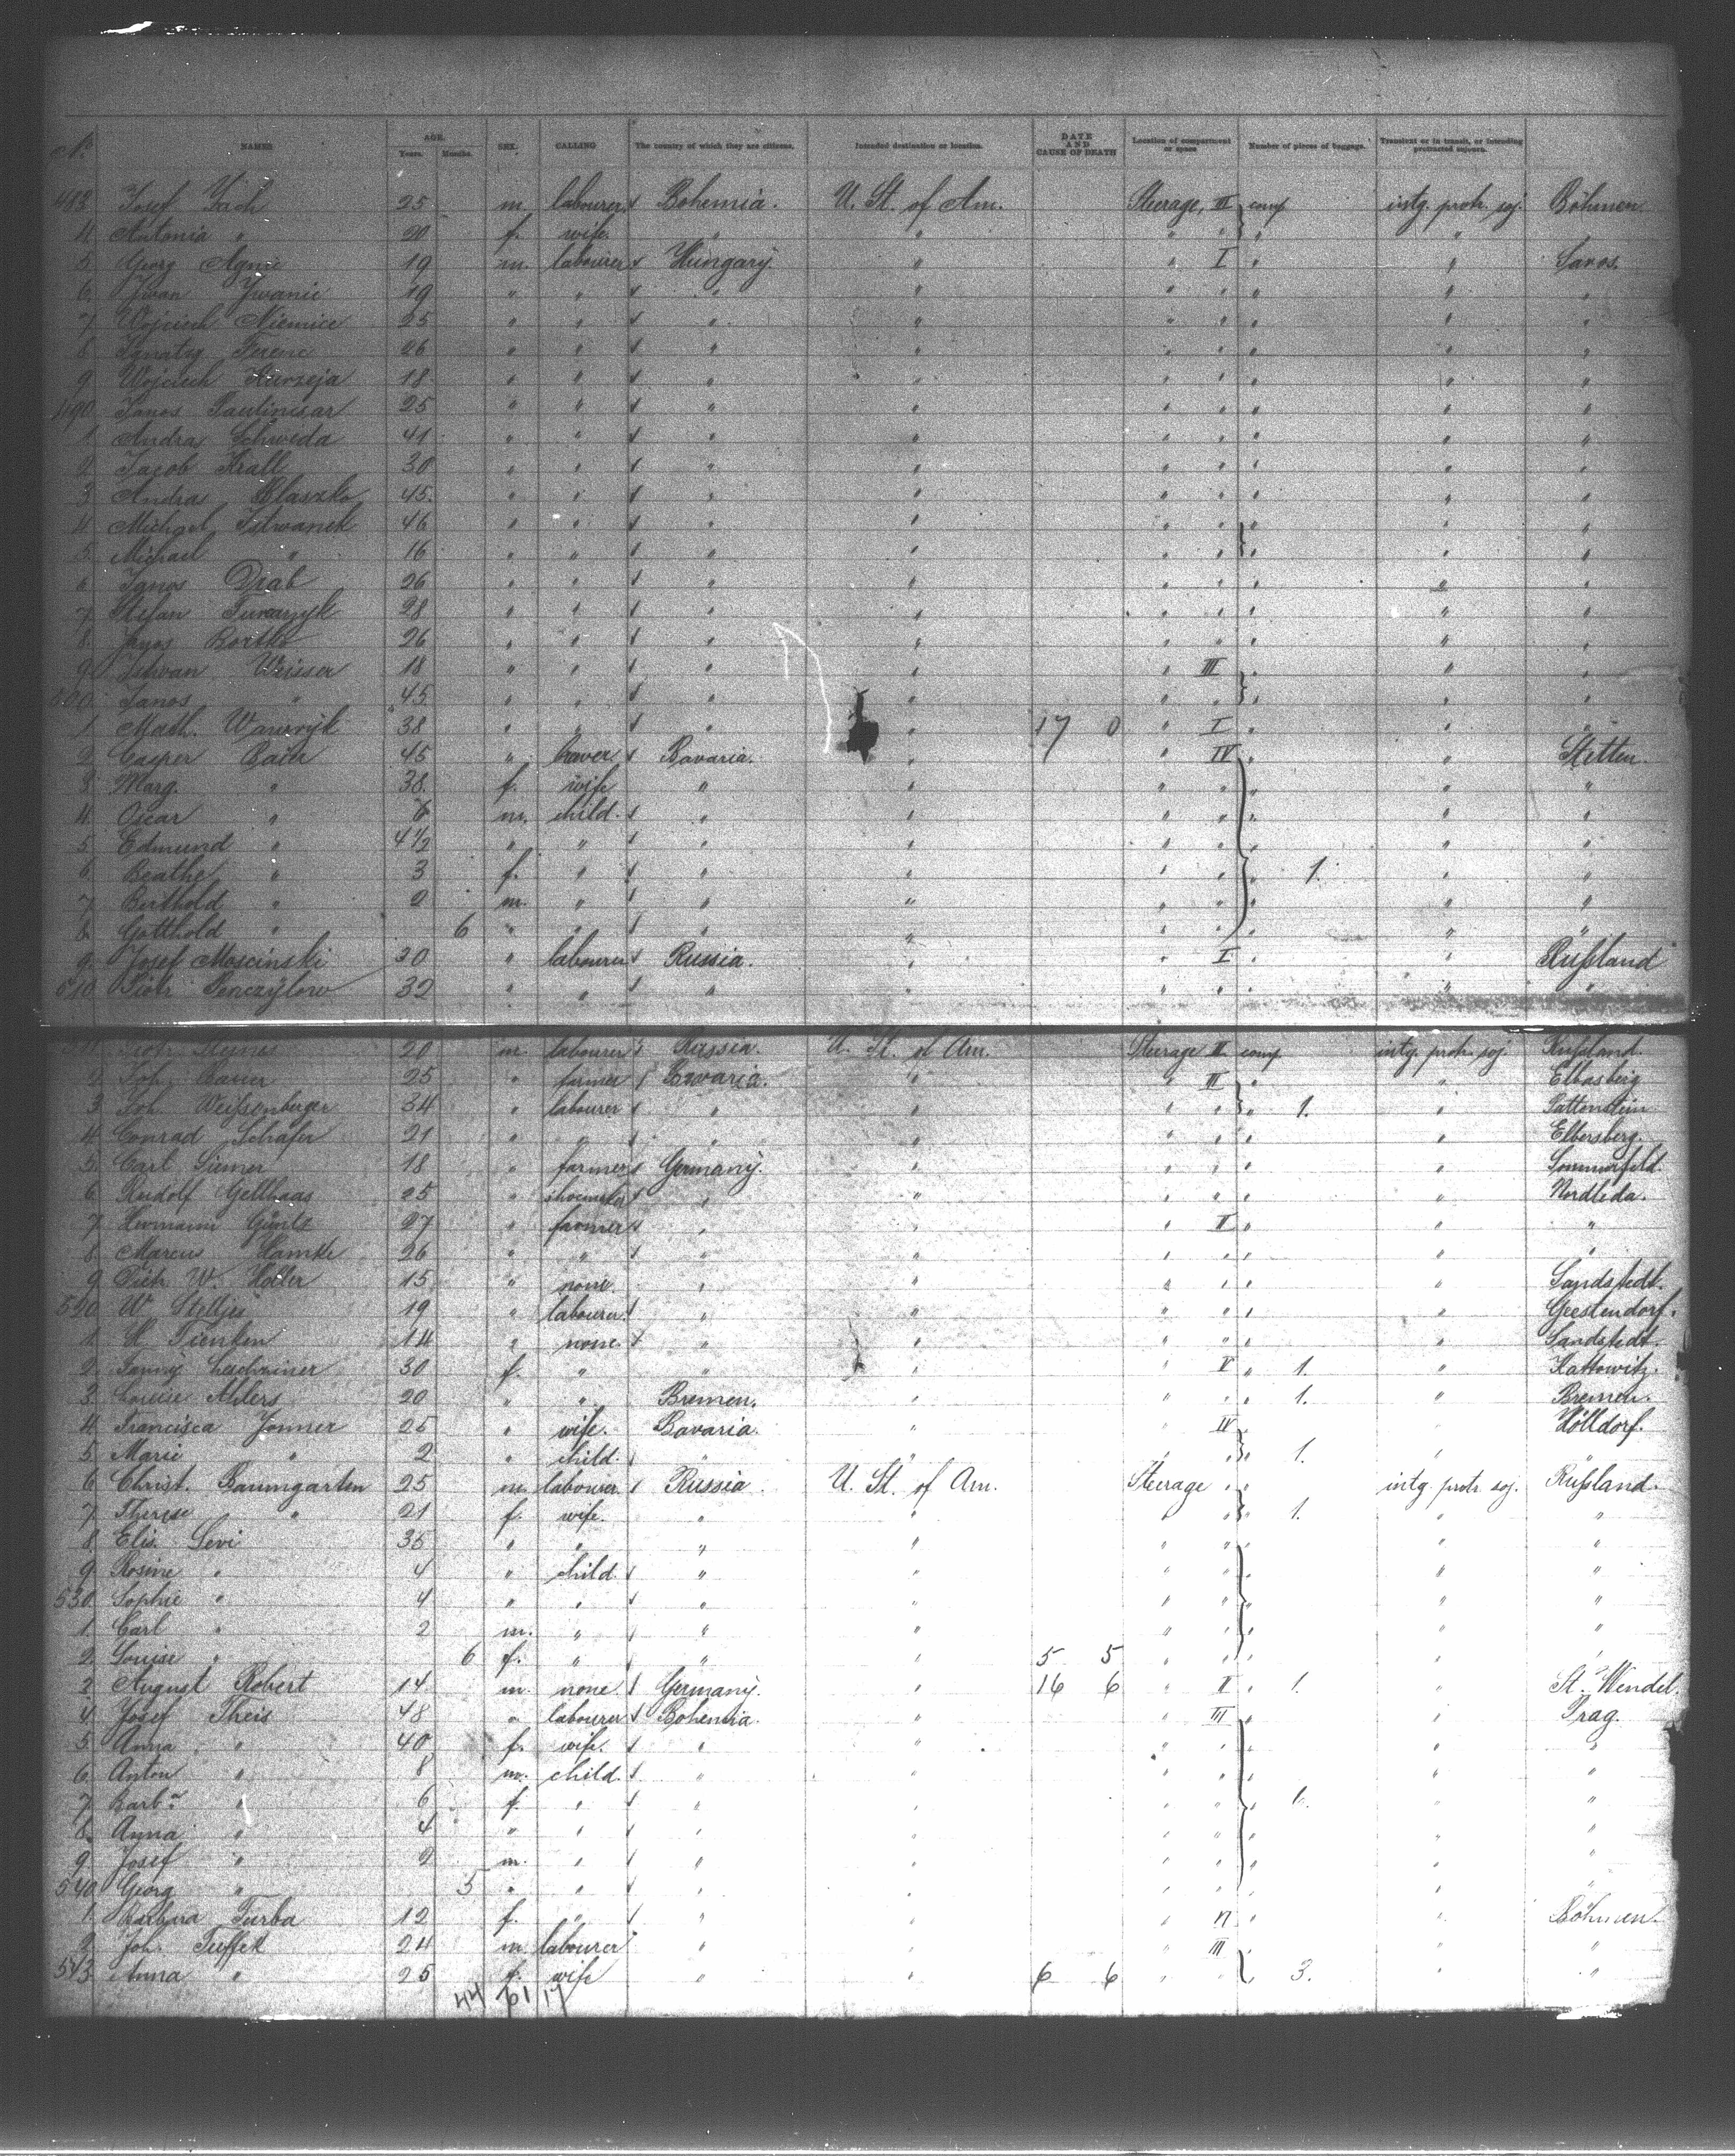 No. NAMES AGE. Years. Months. SEX. CALLING The country of which they are citizens. Intended destination or location. DATE AND CAUSE OF DEATH Location of compartment or space Number of pieces of baggage. Transient or in transit, or intending protracted sojourn.
483 Josef 25 m. labourer Bohemia. U. St. of Am. Steerage, III comp intg. protr. soj. Böhmen
4 Antonia " 20 f. wife " " " " " "
5 Georg 19 m. labourer Hungary. " " I " " Saros.
6 Iwan Iwanic 19 " " " " " " " " "
7 Wojciech Niemice 25 " " " " " " " " "
8 Ignatzy Ferenc 26 " " " " " " " " "
9 Wojciech Kurzeja 18 " " " " " " " " "
490 Janos Paulinisar 25 " " " " " " " " "
1 Andras Schweda 41 " " " " " " " " "
2 Jacob Krall 30 " " " " " " " " "
3 Andras Hlaszko 45 " " " " " " " " "
4 Michael Istwanek 46 " " " " " " " " "
5 Michael " 16 " " " " " " " " "
6 Janos Drab 26 " " " " " " " " "
7 Stefan 28 " " " " " " " " "
8 Janos Bortko 26 " " " " " " " " "
9 Istwan Weisser 18 " " " " " III " " "
500 Janos " 45 " " " " " " " " "
1 Math. Wawryk 38 " " " " 17 0 " I " " "
2 Casper Baier 45 " Bavaria. " " IV " " Stetten.
3 Marg. " 38 f. wife " " " " " " "
4 Oscar " 6 m. child " " " " " " "
5 Edmund " 4 1/2 " " " " " " " " "
6 Beathe " 3 f. " " " " " " 1. " "
7 Berthold " 2 m. " " " " " " " "
8 Gotthold " 6 " " " " " " " " "
9 Josef Moscinski 30 " labourer Russia. " " I " " Rußland
510 Piotr 32 " " " " " " " " "
20 m. labourer Russia. U. St. of Am. Steerage II comp intg. protr. soj. Rußland.
2 Joh. Bauer 25 " farmer Bavaria. " " III " " Elbasberg
3 Joh. Weißenberger 34 " labourer " " " " " 1. " Pottenstein
4 Conrad Schäfer 21 " " " " " " " " Elbersberg.
5 Carl Siemer 18 " farmer Germany. " " " " " Sommerfeld.
6 Rudolf Gellhaas 25 " shoemaker " " " " " " Nordleda.
7 Hermann Günts 27 " farmer " " " II " " "
8 Marcus Hamke 26 " " " " " " " " "
9 Dietr. W. Holler 15 " none. " " " " " " Sandstedt.
520 W. Stelljes 19 " labourer " " " " " " Geestendorf.
1 H. Tienken 14 " none. " " " " " " Sandstedt.
2 Fanny 30 f. " " " " V " 1. " Kattowitz.
3 Louise Ahlers 20 " " Bremen. " " " " 1. " Bremen.
4 Francisca Jonner 25 " wife. Bavaria. " " IV " Hölldorf.
5 Marie " 2 " child. " " " " " 1. "
6 Christ. Baumgarten 25 m. labourer Russia U. St. of Am. Steerage " " intg. protr. soj. Rußland.
7 Therese " 21 f. wife. " " " " " 1. " "
8 Elis. Levi 35 " " " " " " " "
9 Rosine " 4 " child " " " " " " "
530 Sophie " 4 " " " " " " " " "
1 Carl " 2 m. " " " " " " " "
2 Louise " 6 f. " " " 5 5 " " " " "
2 August Robert 14 m. none. Germany. " 16 6 " II " 1. " St. Wendel.
4 Josef Theis 48 " labourer Bohemia. " " III " " Prag.
5 Anna " 40 f. wife. " " " " " " "
6 Anton " 8 m. child. " " " " " " "
7 Barb.a " 6 f. " " " " " " 1. " "
8 Anna " 4 " " " " " " " " "
9 Josef " 2 m. " " " " " " " "
540 Georg " 5 " " " " " " " " "
1 Barbara Turba 12 f. " " " " " " Böhmen.
2 Joh. Tuffek 24 m. labourer " " " III " " "
543 Anna " 25 f. wife " " 6 6 " " " 3. " "
44 61 17